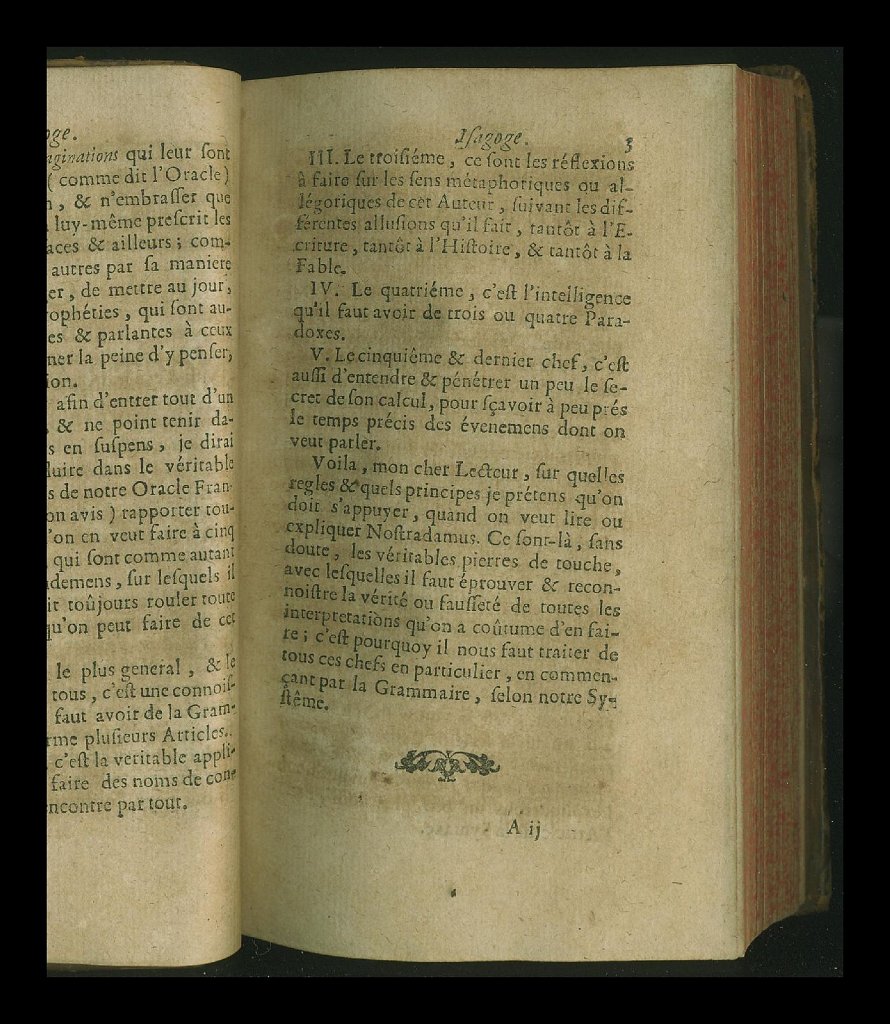 oge.
aginations qui leur ſont
( comme dit l'Oracle )
, & n'embraſſer que
luy-même preſcrit les
aces & ailleurs ; com-
autres par ſa maniere
er, de mettre au jour,
ophéties, qui ſont au-
es & parlantes à ceux
ner la peine d'y penſer,
ion.
afin d'entrer tout d'un
, & ne point tenir da-
s en ſuſpens, je dirai
duire dans le véritable
s de notre Oracle Fran-
on avis ) rapporter tou-
'on en veut faire à cinq
qui ſont comme autant
demens, ſur leſquels il
it toûjours rouler toute
qu'on peut faire de cet
le plus general, & le
tous, c'eſt une connoiſ-
faut avoir de la Gram-
rme pluſieurs Articles.
c'eſt la veritable appli-
faire des noms de con-
ncontre par tout.
Iſagoge. 3
III. Le troiſiéme, ce ſont les réflexions
à faire ſur les ſens métaphoriques ou al-
légoriques de cét Auteur, ſuivant les dif-
férentes alluſions qu'il fait, tantôt à l'E-
criture, tantôt à l'Hiſtoire, & tantôt à la
Fable.
IV. Le quatriéme, c'eſt l'intelligence
qu'il faut avoir de trois ou quatre Para-
doxes.
V. Le cinquiéme & dernier chef, c'eſt
auſſi d'entendre & pénétrer un peu le ſe-
cret de ſon calcul, pour ſçavoir à peu prés
le temps précis des évenemens dont on
veut parler.
Voila, mon cher Lecteur, ſur quelles
regles & quels principes je prétens qu'on
doit s'appuyer, quand on veut lire ou
expliquer Noſtradamus. Ce ſont-là, ſans
doute, les véritables pierres de touche,
avec leſquelles il faut éprouver & recon-
noiſtre la vérité ou fauſſeté de toutes les
interpretations qu'on a coûtume d'en fai-
re ; c'eſt pourquoy il nous faut traiter de
tous ces chefs en particulier, en commen-
çant par la Grammaire, ſelon notre Sy-
ſtême.
A ij